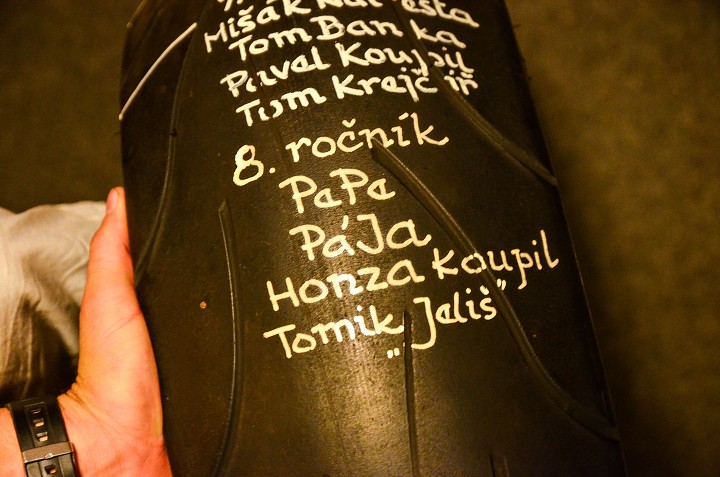 Mišák
Tom Banka
Pavel Koupil
Tom Krejčiř
8. ročník
PaPa
PáJa
Honza Koupil
Tomik „Jeliš"